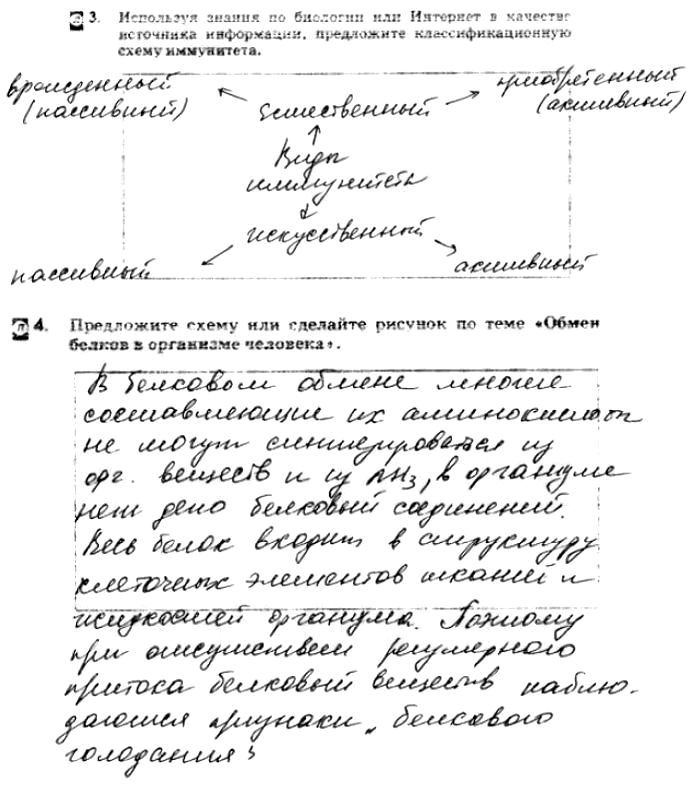 3. Используя знания по биологии или Интернет в качестве
источника информации, предложите классификационную
схему иммунитета.
врожденный приобретенный
(пассивный) естественный (активный)
Виды
иммунитета
искусственный
пассивный активный
4. Предложите схему или сделайте рисунок по теме «Обмен
белков в организме человека».
В белковом обмене многие
составляющие их аминокислоты
не могут синтезироваться из
орг. веществ и из NH3, в организме
нет депо белковый соединений.
Весь белок входит в структуру
клеточных элементов тканей и
жидкостей организма. Поэтому
при отсутствии регулярного
притока белковый веществ наблю-
даются признаки „белкового
голодания"